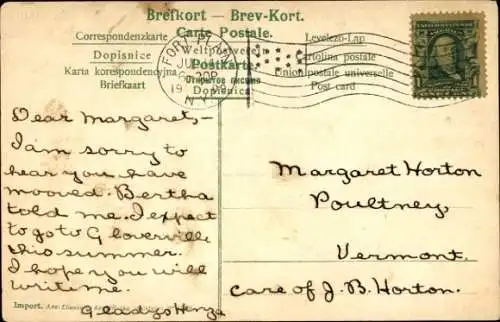 Brefkort – Brev-Kort.
Carte Postale.
Correspondenzkarte
Levelező-Lap
Dopisnice
Weltpostverein
Cartolina postale
Karta korespondencyjna
Postkarte.
Unionpostale universelle
Briefkaart
Dopisnica
Post card
FORT PLAIN
N.Y.
Dear Margaret,—
I am sorry to
hear you have
mooved. Bertha
told me. I expect
to go to Gloversville
this summer.
I hope you will
write me.
Gladys
Margaret Horton
Poultney,
Vermont.
care of J. B. Horton.
Import.